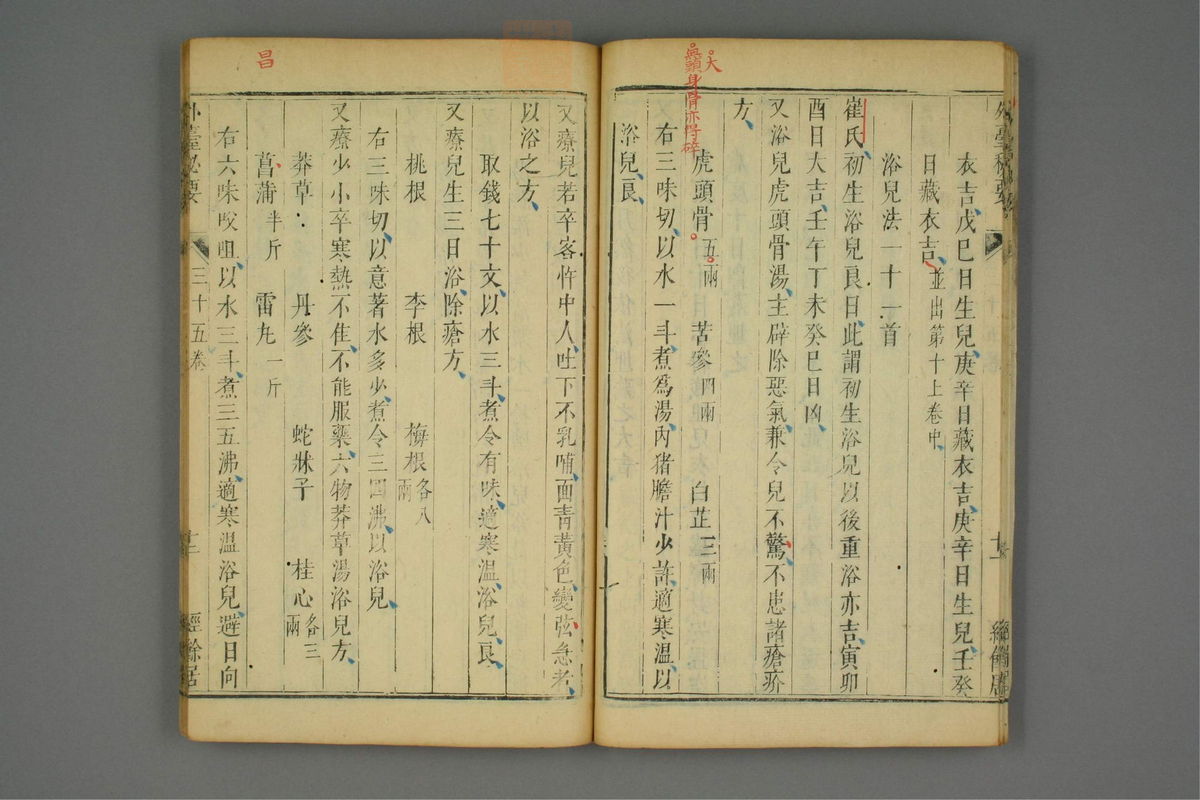 大
無頭身骨亦得碎
外臺秘要
十一
經餘居
衣吉戊巳日生兒庚辛日藏衣吉庚辛日生兒壬癸
日藏衣吉並出第十上卷中
浴兒法一十一首
崔氏初生浴兒良日此謂初生浴兒以後重浴亦吉寅卯
酉日大吉壬午丁未癸巳日凶
又浴兒虎頭骨湯主辟除惡氣兼令兒不驚不患諸瘡疥
方
虎頭骨五兩 苦參四兩 白芷三兩
右三味切以水一斗煮爲湯內猪膽汁少許適寒溫以
浴兒良
昌
又療兒若卒客忤中人吐下不乳哺面青黃色變弦急者
以浴之方
取錢七十文以水三斗煮令有味適寒溫浴兒良
又療兒生三日浴除瘡方
桃根 李根 梅根各八兩
右三味切以意著水多少煮令三四沸以浴兒
又療少小卒寒熱不佳不能服藥六物莽草湯浴兒方
莽草 丹參 蛇牀子 桂心各三兩
菖蒲半斤 雷丸一斤
右六味㕮咀以水三斗煮三五沸適寒溫浴兒避日向
外臺秘要
三十五卷
十二
經餘居